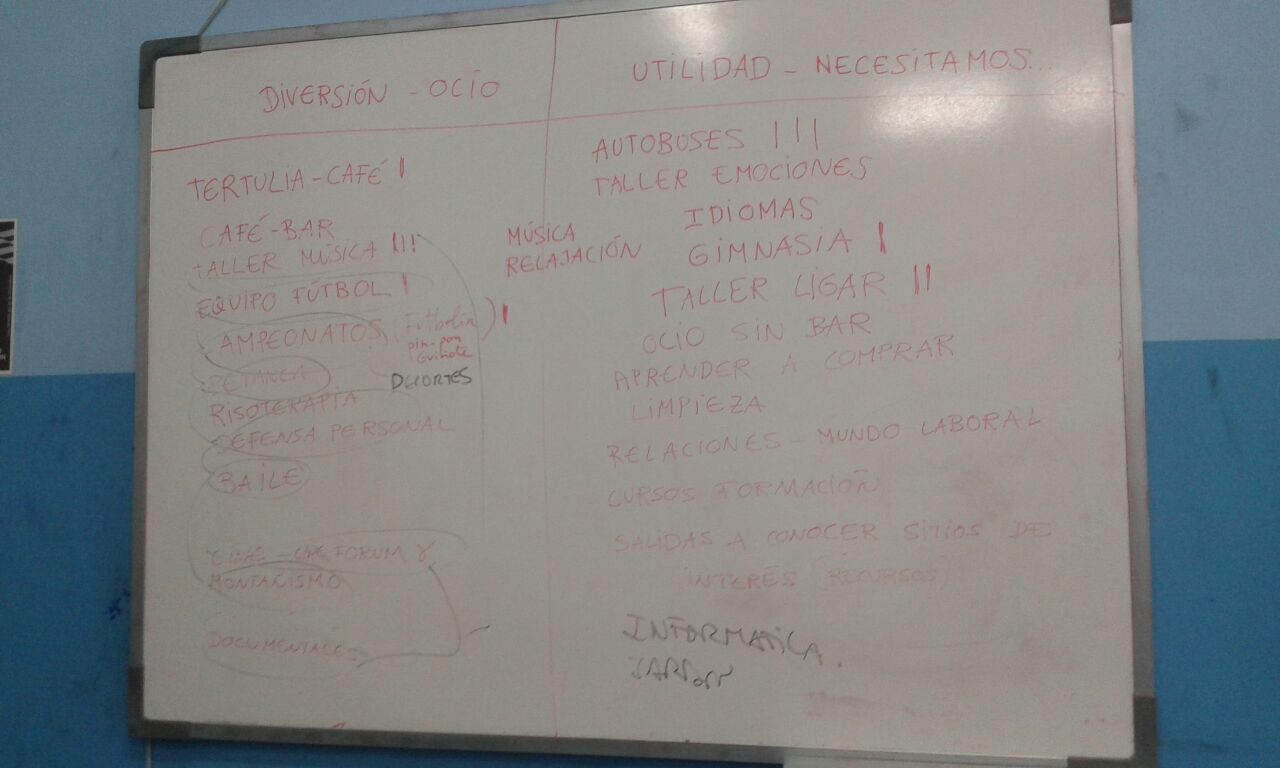 DIVERSIÓN - OCIO
TERTULIA - CAFÉ I
CAFÉ - BAR
TALLER MÚSICA III
EQUIPO FÚTBOL I
CAMPEONATOS (Futbolin I
pin-pon
Guiñote)
PETANCA
DEPORTES
RISOTERAPIA
DEFENSA PERSONAL
BAILE
CINE - CINE FORUM
MONTAÑISMO
DOCUMENTALES
UTILIDAD - NECESITAMOS...
AUTOBOSES III
TALLER EMOCIONES
IDIOMAS
MÚSICA
RELAJACIÓN
GIMNASIA I
TALLER LIGAR II
OCIO SIN BAR
APRENDER A COMPRAR
LIMPIEZA
RELACIONES - MUNDO LABORAL
CURSOS FORMACIÓN
SALIDAS A CONOCER SITIOS DE
INTERÉS RECURSOS
INFORMATICA.